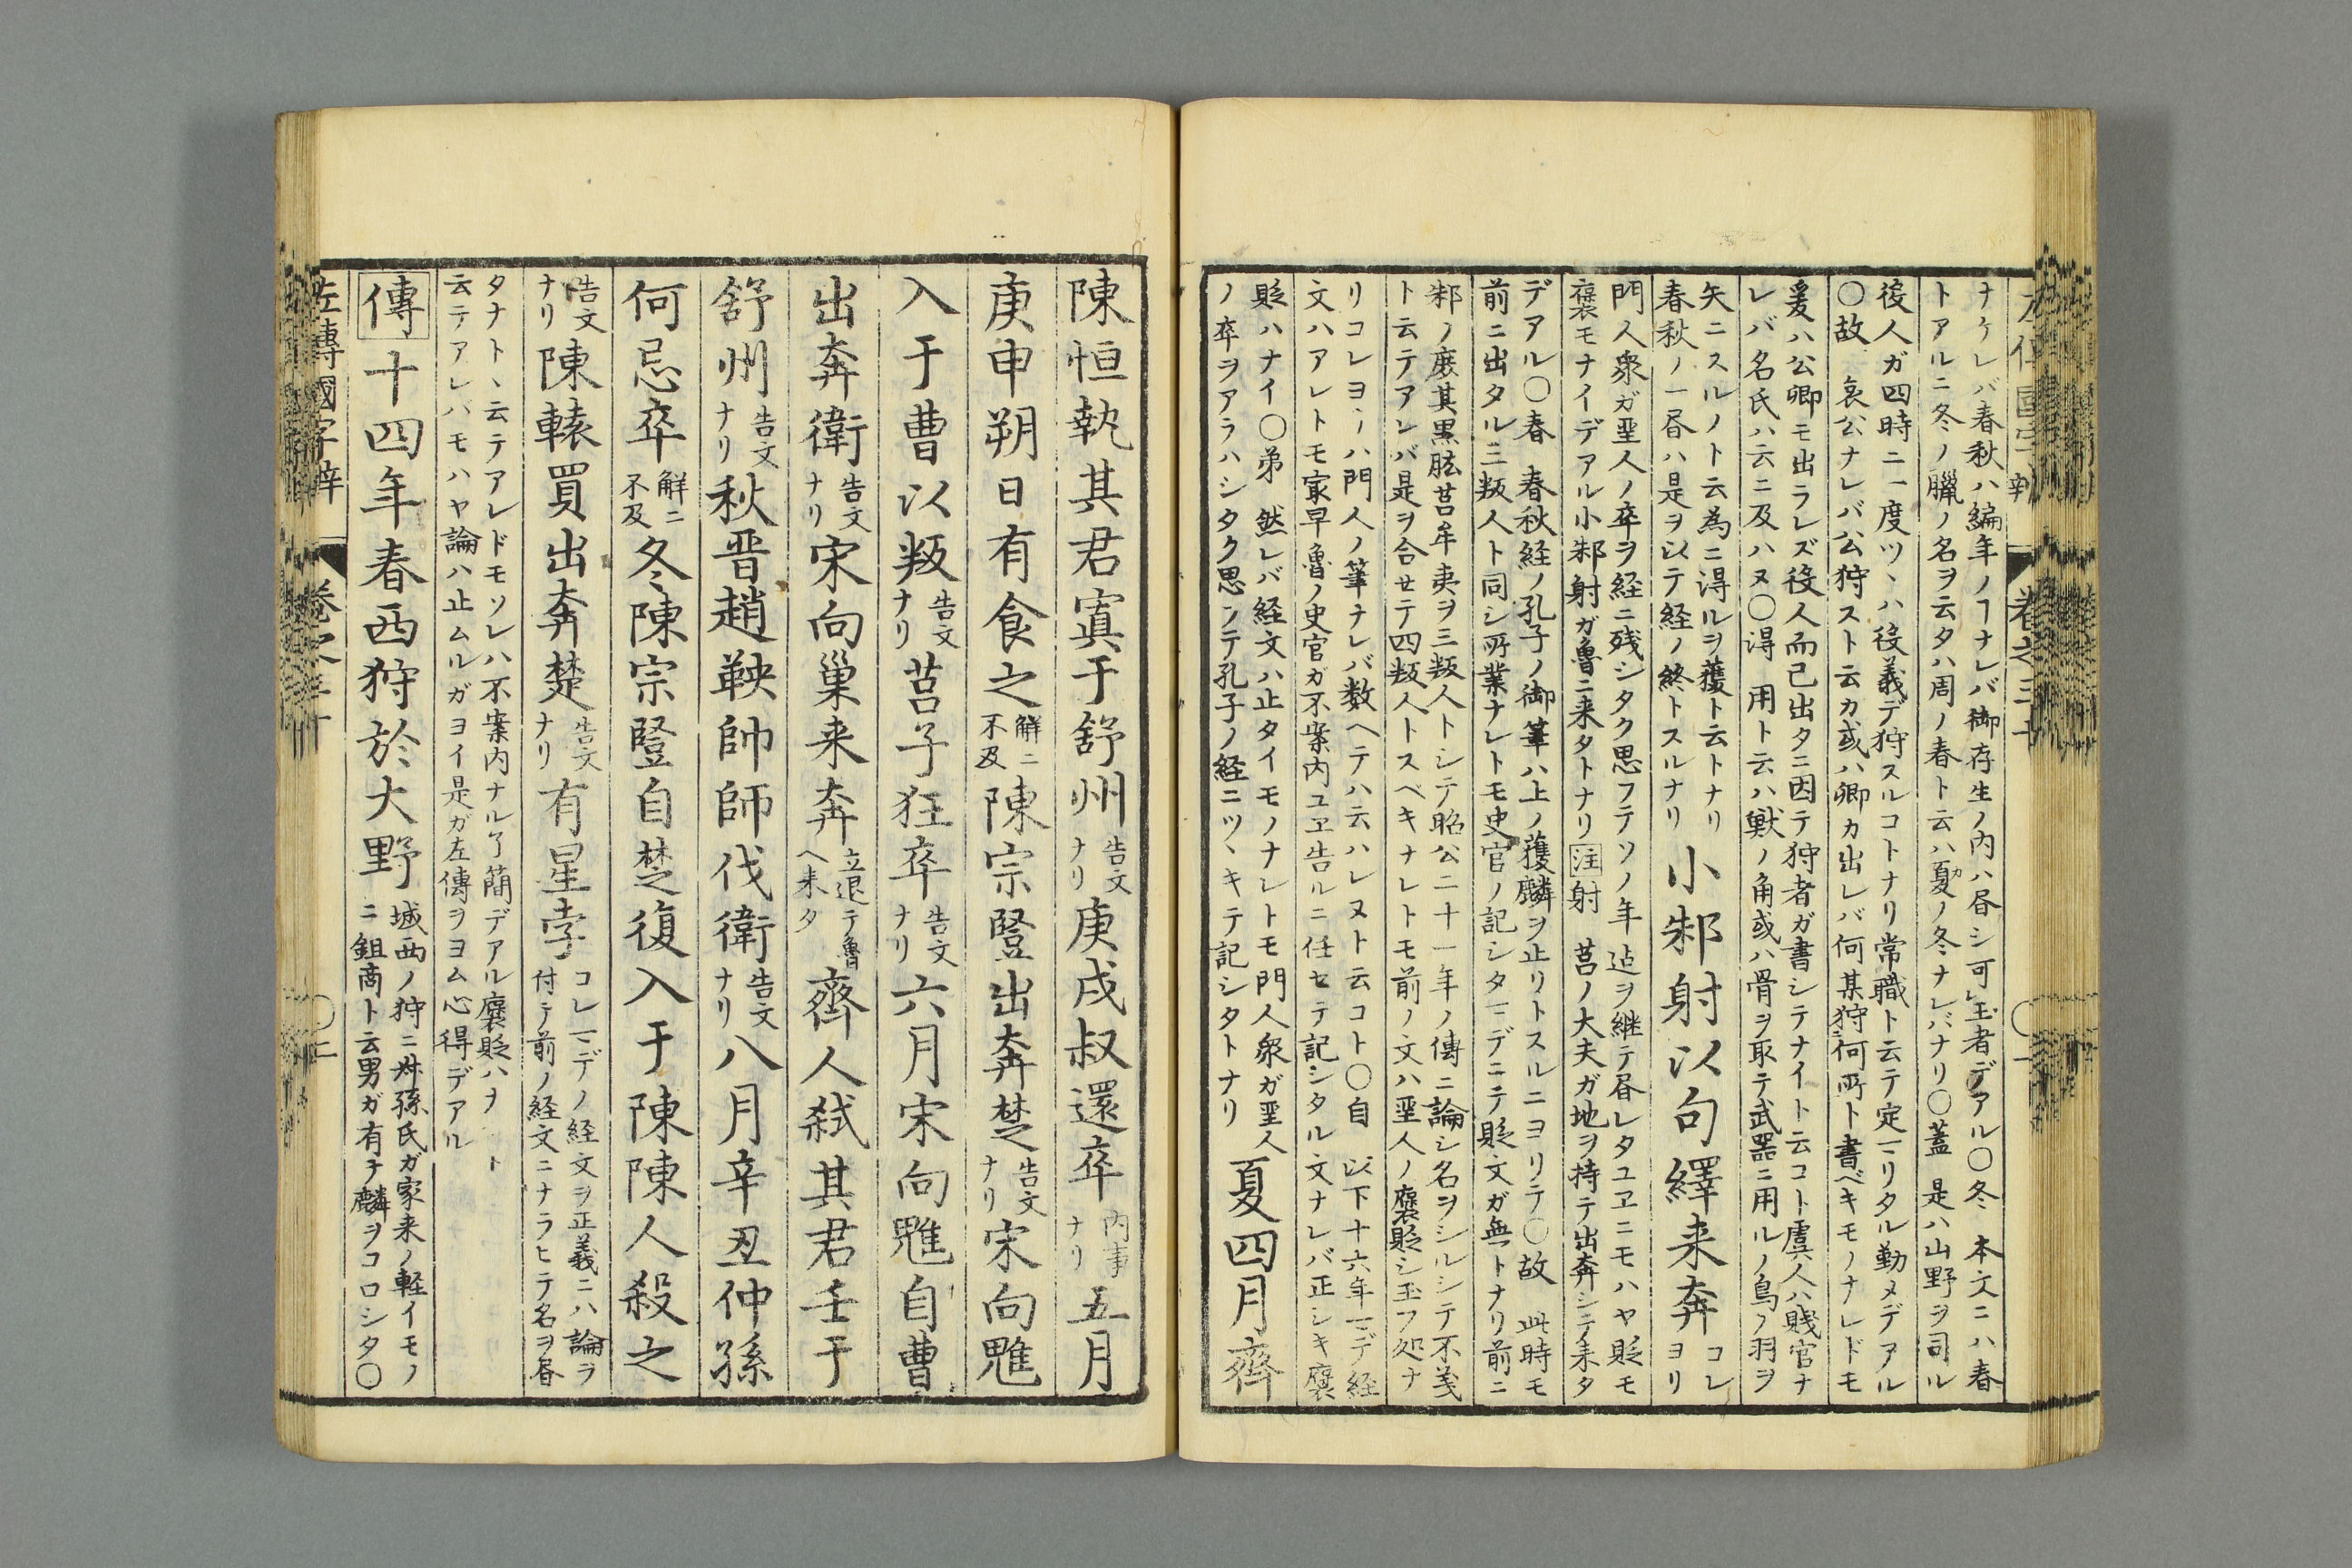 ナケレバ春秋ハ編年ノヿナレバ御存生ノ内ハ昏シ可玉者デアル〇冬 本文ニハ春
トアルニ冬ノ臘ノ名ヲ云タハ周ノ春ト云ハ夏ノ冬ナレバナリ〇蓋 是ハ山野ヲ司ル
後人ガ四時ニ一度ツヽハ役義デ狩スルコトナリ常職ト云テ定リタル勤メデアル
〇故 哀公ナレバ公狩スト云カ或ハ卿カ出レバ何某狩何所ト書ベキモノナレドモ
爰ハ公卿モ出ラレズ役人而已出タニ因テ狩者ガ書シテナイト云コト虞人ハ賤官ナ
レバ名氏ハ云ニ及ハヌ〇得 用ト云ハ獣ノ角或ハ骨ヲ取テ武器ニ用ルノ鳥ノ羽ヲ
矢ニスルノト云為ニ得ルヲ獲ト云トナリ
春秋ノ一昏ハ是ヲ以テ経ノ終トスルナリ
小邾射以句繹来奔 コレヨリ
門人衆ガ聖人ノ卒ヲ経ニ残シタク思フテソノ年迠ヲ継テ昏レタユヱニモハヤ貶モ
褒モナイデアル小邾射ガ魯ニ来タトナリ 注 射 莒ノ大夫ガ地ヲ持テ出奔シテ来タ
デアル〇春 春秋経ノ孔子ノ御筆ハ上ノ獲麟ヲ止リトスルニヨリテ〇故 此時モ
前ニ出タル三叛人ト同シ所業ナレトモ史官ノ記シタデニテ貶文ガ無トナリ前ニ
邾ノ庶其黒肱莒牟夷ヲ三叛人トシテ昭公三十一年ノ傳ニ論シ名ヲシルシテ不義
ト云テアレバ是ヲ合せテ四叛人トスベキナレトモ前ノ文ハ聖人ノ褒貶シ玉フ処ナ
リコレヨヽハ門人ノ筆ナレバ数ヘテハ云ハレヌト云コト〇自 以下十六年デ経
文ハアレトモ寂早魯ノ史官ガ不案内ユヱ告ルニ任セテ記シタル文ナレバ正シキ褒
貶ハナイ〇弟 然レバ経文ハ止タイモノナレトモ門人衆ガ聖人
ノ卒ヲアラハシタク思フテ孔子ノ経ニツヽキテ記シタトナリ
夏四月齊
陳恒執其君寘于舒州 告文ナリ 庚戌叔還卒 内事ナリ 五月
庚申朔日有食之 解ニ不及 陳宗豎出奔楚 告文ナリ 宋向魋
入于曹以叛 告文ナリ 莒子狂卒 告文ナリ 六月宋向魋自曹
出奔衛 告文ナリ 宋向巢来奔 立退テ魯ヘ来タ 齊人弑其君壬于
舒州 告文ナリ 秋晋趙鞅帥師伐衛 告文ナリ 八月辛丑仲孫
何忌卒 解ニ不及 冬陳宗豎自楚復入于陳陳人殺之
告文ナリ 陳轅買出奔楚 告文ナリ 有星孛 コレデノ経文ヲ正義ニハ論ヲ
付テ前ノ経文ニナラヒテ名ヲ昏
タナトヽ云テアレドモソレハ不案内ナル了簡デアル褒貶ハナ
云テアレバモハヤ論ハ止ムルガヨイ是ガ左傳ヲヨム心得デアル
傳 十四年春西狩於大野 城西ノ狩ニ叔孫氏ガ家来ノ軽イモノ
ニ鉏商ト云男ガ有テ麟ヲコロシタ〇
左傳國字辯 巻之三十